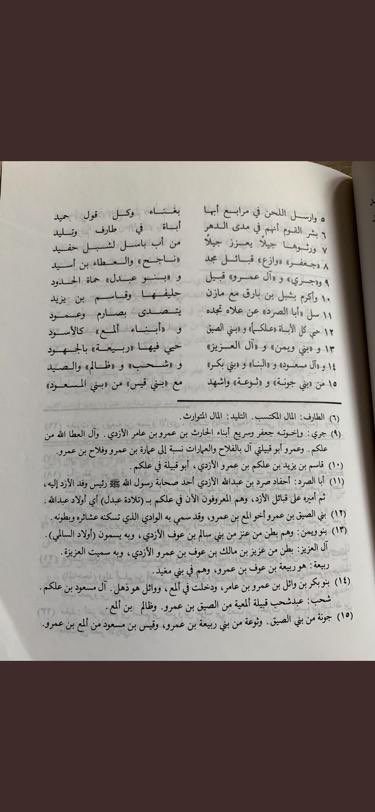 ٥ وارسل اللحن في مرابع أبها بغناء وكل قول حميد
٦ بشر القوم أنهم في مدى الدهر أباة في طارف وتليد
٧ ورثوها جيلاً يعزز جيلاً من أب باسل لشبل حفيد
٨ «جعفر» «وازع» قبائل مجد «ناجح» والعطاء بن أسيد
٩ و«جري» و «آل عمرو» قبيل و «بنو عبدل» حماة الحدود
١٠ وأكرم بشبل بن بارق مع مازن حليفها وقاسم بن يزيد
١١ سل «أبا الصرد» عن علاه تجده يتصدى بصارم وعمود
١٢ حي كل الأباة «علكم» و «بني الصيق و «أبناء ألمع» كالأسود
١٣ و «بني ويمن» و «آل العزيز» حيي فيها «ربيعة» بالجهود
١٤ و «آل سعود» و «البنا» و «بني بكر» و «شحب» و «ظالم» والصيد
١٥ من «بني جونة» و «ثوعة» واشهد مع «بني قيس» من «بني المسعود»
(٦) الطارف: المال المكتسب. التليد: المال المتوارث.
(٩) جري: وإخوته جعفر وسريع أبناء الحارث بن عمرو بن عامر الأزدي. وآل العطا الله من
علكم. وعمرو أبو قبيلتي آل بالفلاح والعمارات نسبة إلى عمارة بن عمرو وفلاح بن عمرو.
(١٠) قاسم بن يزيد بن علكم بن عمرو الأزدي، أبو قبيلة في علكم.
(١١) أبا الصرد: أحفاد صرد بن عبدالله الأزدي أحد صحابة رسول الله ﷺ رئيس وفد الأزد إليه،
ثم أميره على قبائل الأزد، وهم المعروفون الآن في علكم بـ (تلادة عبدل) أي أولاد عبدالله.
(١٢) بني الصيق بن عمرو أخو ألمع بن عمرو، وقد سمي به الوادي الذي تسكنه عشائره وبطونه.
(١٣) بنو ويمن: وهم بطن من عنز من بني سالم بن عوف الأزدي، وبه يسمون (أولاد السالمي).
آل العزيز: بطن من عزيز بن مالك بن عوف بن عمرو الأزدي، وبه سميت العزيزة.
ربيعة: هو ربيعة بن عوف بن عمرو، وهم في بني مغيد.
(١٤) بنو بكر بن وائل بن عمرو بن عامر، ودخلت في ألمع، ووائل هو ذهل. آل مسعود بن علكم.
شحب: عبدشحب قبيلة ألمعية من الصيق بن عمرو. وظالم بن ألمع.
(١٥) جونة من بني الصيق. وثوعة من بني ربيعة بن عمرو، وقيس بن مسعود من ألمع بن عمرو.